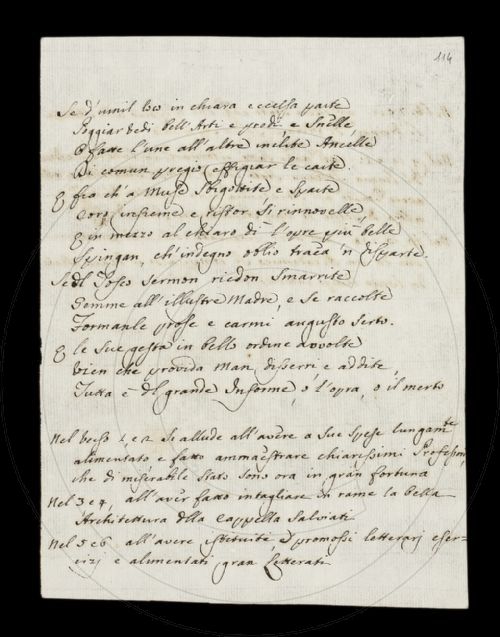 114
Se d'umil loco in chiara eccelsa parte
Poggiar vedi bell'Arti e prodi e snelle
E fatte l'une all'altre inclite Ancelle
Di comun pregio effigiar le carte.
E fia ch'a Muse sbigottite e sparte
Coro insieme e ristor si rinnovelle,
E in mezzo al chiaro di l'opre più belle
Spingan, ch'indegno oblio traea 'n disparte.
Se dl Tosco sermon riedon smarrite
Gemme all'illustre Madre, e se raccolte
Formanle prose e carmi augusto serto.
E le sue gesta in bello ordine avvolte
vien che provida man disserri, e addite,
Tutta è dl grande Informe, o l'opra, o il merto
Nel verso 1, e 2 si allude all'avere a sue spese lungamte
alimentato e fatto ammaestrare chiarissimi Professori,
che di miserabile stato sono ora in gran fortuna
Nel 3 e 4, all'aver fatto intagliare in rame la bella
Architettura dlla Cappella Salviati
Nel 5 e 6 all'avere istituite e promossi letterarj eser-
cizj e alimentati gran Letterati